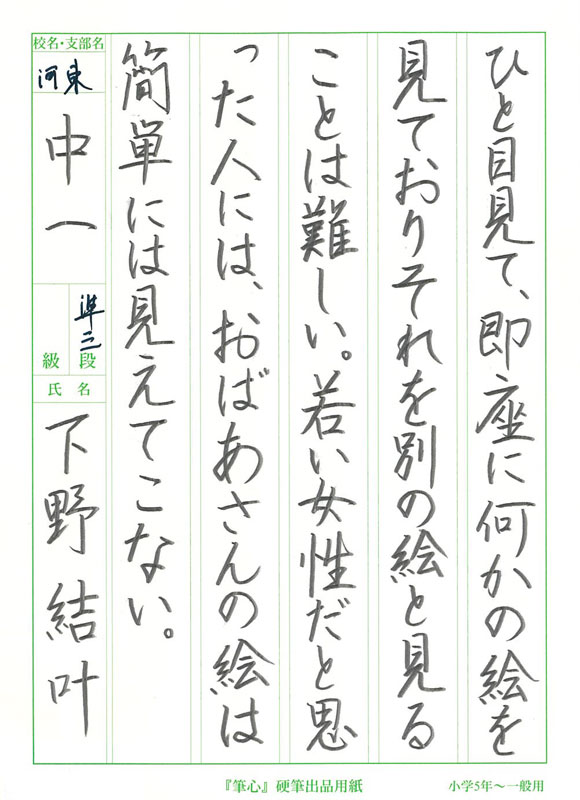 ひと目見て、即座に何かの絵を
見ておりそれを別の絵と見る
ことは難しい。若い女性だと思
った人には、おばあさんの絵は
簡単には見えてこない。
校名・支部名
河東
中一
準三
級 段
氏 名
下野結叶
『筆心』硬筆出品用紙
小学5年〜一般用